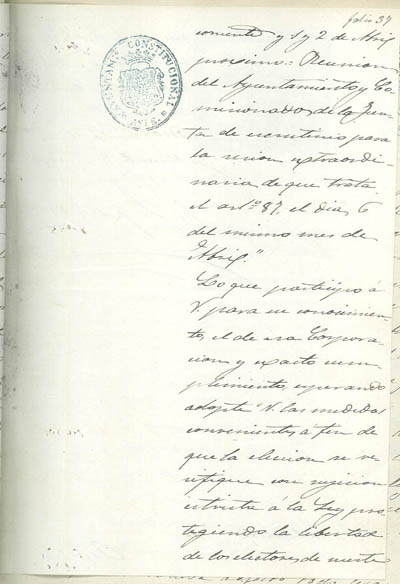 folio 37
AYUNTAMIENTO CONSTITUCIONAL
corriente y 1 y 2 de Abril
proximo: Reunion
del Ayuntamiento y Co-
misionados de la Jun-
ta de escrutinio para
la sesion extraordi-
naria de que trata
el artº 87, el dia 6
del mismo mes de
Abril."
Lo que participo á
V. para su conocimien-
to, el de esa Corpora-
cion y exacto cum-
plimiento, esperando
adopte V. las medidas
convenientes á fin de
que la eleccion se ve-
rifique con sujecion
estricta á la Ley pro-
tegiendo la libertad
de los electores de